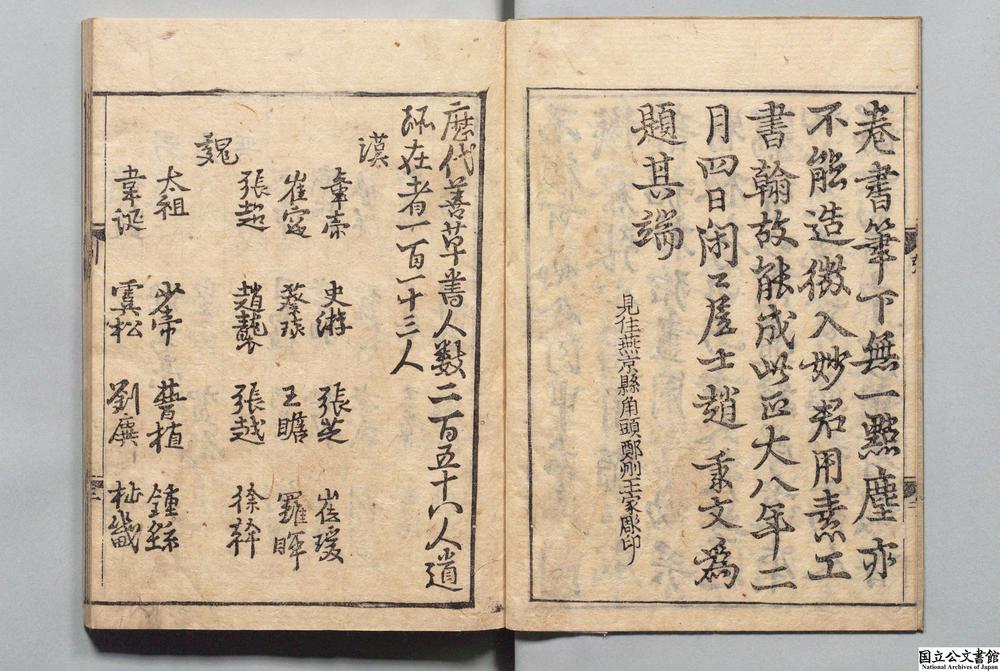 卷書筆下無一點塵亦
不能造微入妙君用素工
書翰故能成此正大八年二
月四日閑〻居士趙秉文為
題其端
見住燕京縣角頭鄭州王家彫印
歷代善草書人數二百五十八人遺
跡在者一百一十三人
漢
章帝 史游 張芝 崔瑗
崔寔 蔡琰 王瞻 羅暉
張超 趙襲 張越 徐幹
魏
太祖 少帝 曹植 鍾繇
韋誕 虞松 劉廙 杜畿
国立公文書館
National Archives of Japan